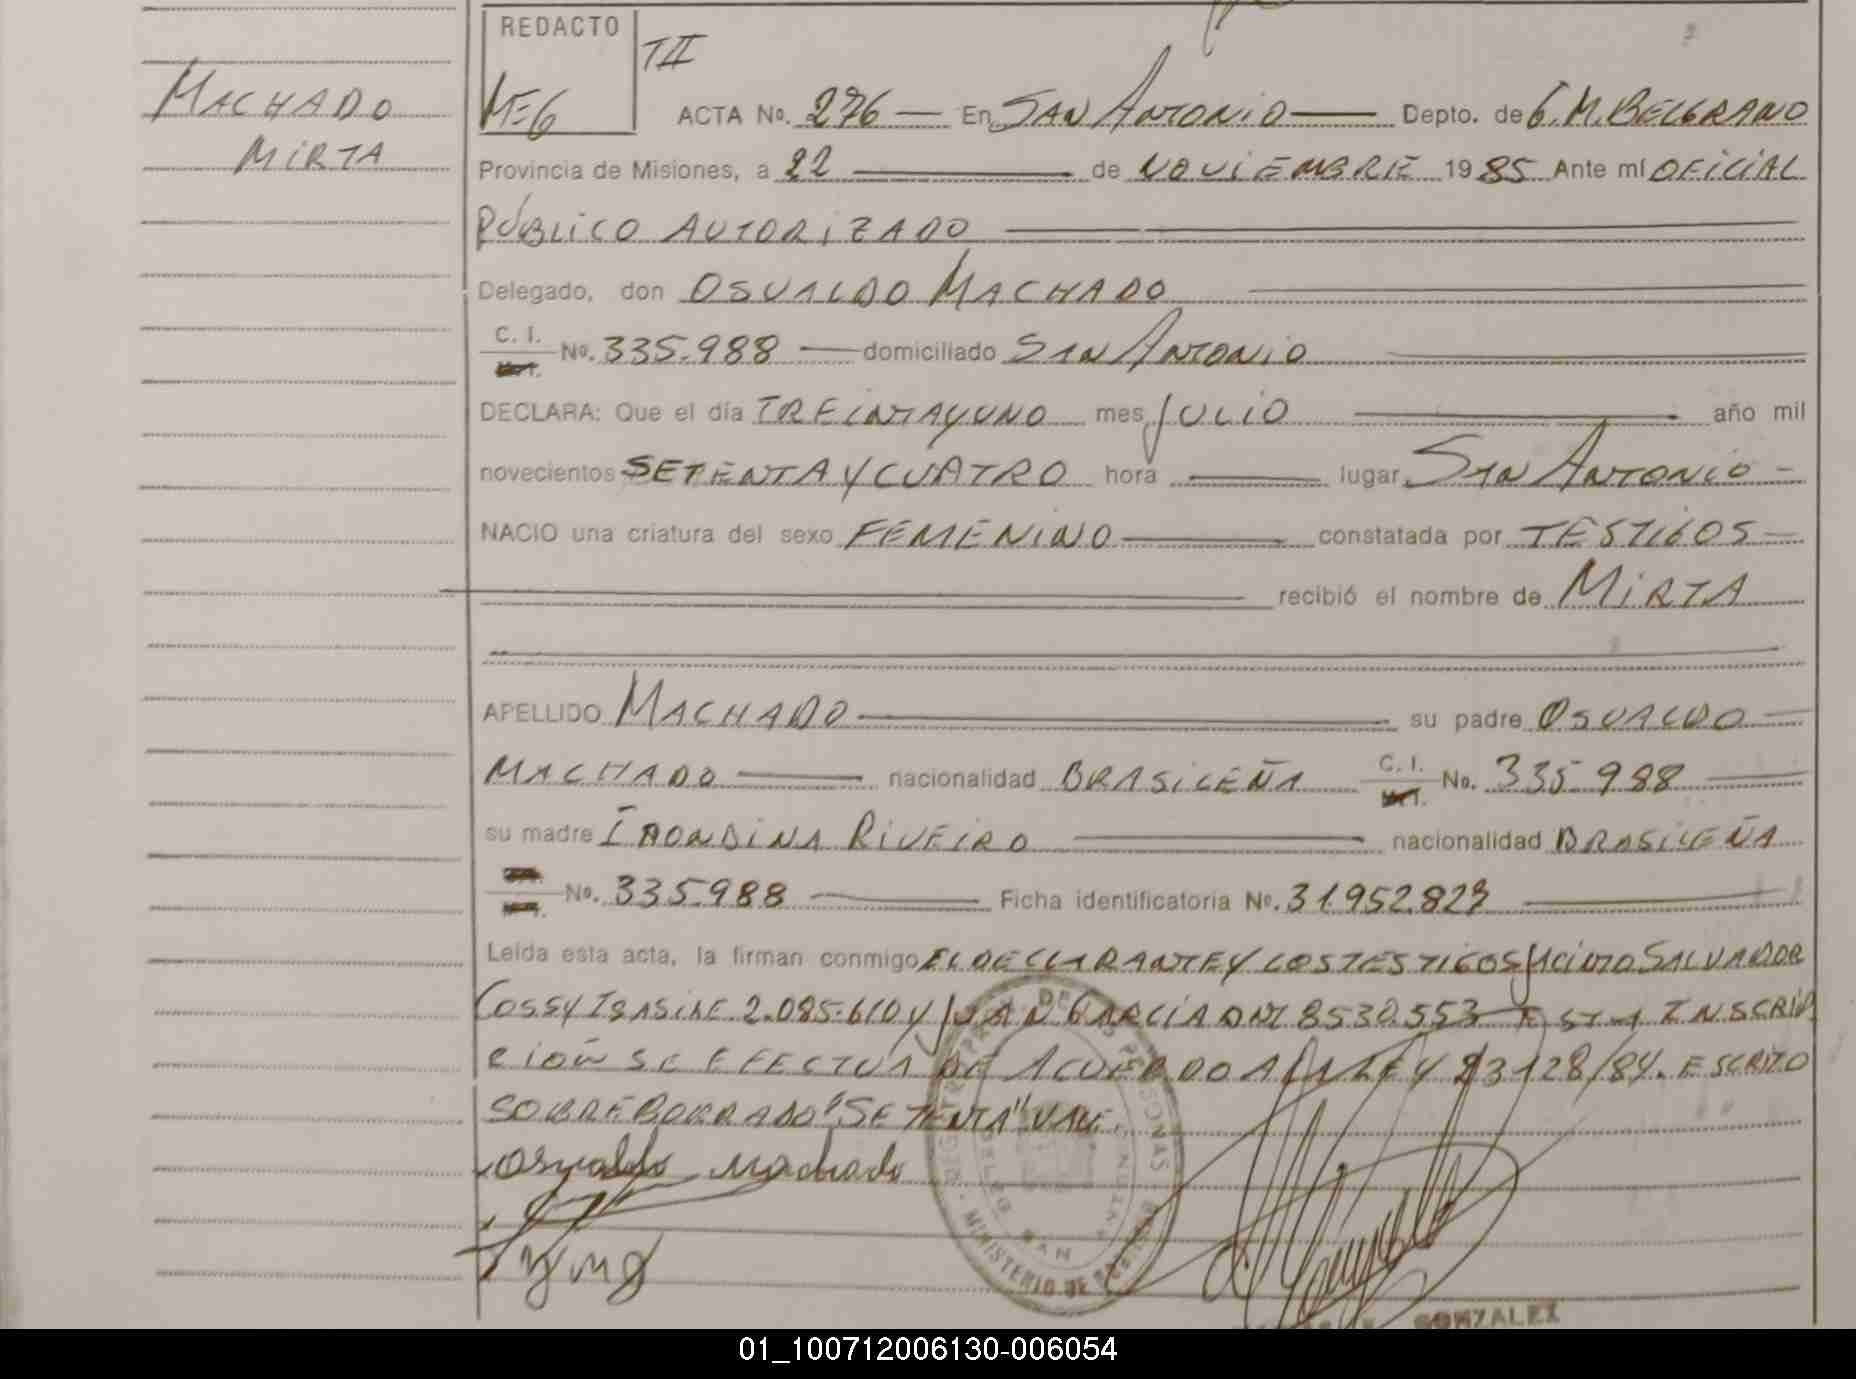 REDACTO
TII
MACHADO
MIRTA
M=6
ACTA No. 276 — En SAN ANTONIO — Depto. de G.M. BELGRANO
Provincia de Misiones, a 22 — de NOVIEMBRE 1985 Ante mí OFICIAL
PÚBLICO AUTORIZADO
Delegado, don OSVALDO MACHADO
C. I. No. 335.988 — domiciliado SAN ANTONIO
DECLARA: Que el día TREINTAYUNO mes JULIO — año mil
novecientos SETENTA Y CUATRO hora — lugar SAN ANTONIO -
NACIO una criatura del sexo FEMENINO — constatada por TESTIGOS -
recibió el nombre de MIRTA
APELLIDO MACHADO — su padre OSVALDO -
MACHADO — nacionalidad BRASILEÑA C. I. No. 335.988 —
su madre IRONDINA RIVEIRO — nacionalidad BRASILEÑA
No. 335.988 — Ficha identificatoria No. 31.952.827 —
Leída esta acta, la firman conmigo EL DECLARANTE Y LOS TESTIGOS JACINTO SALVADOR
2.085.610 Y JUAN GARCÍA DNI 8530.553 ESTA INSCRIP
CIÓN SE EFECTUA DE ACUERDO A LA LEY 23128/84. ESCRITO
SOBREBORRADO "SETENTA" VALE.
Osvaldo Machado
MINISTERIO DE GOBIERNO
GONZALEZ
01_100712006130-006054